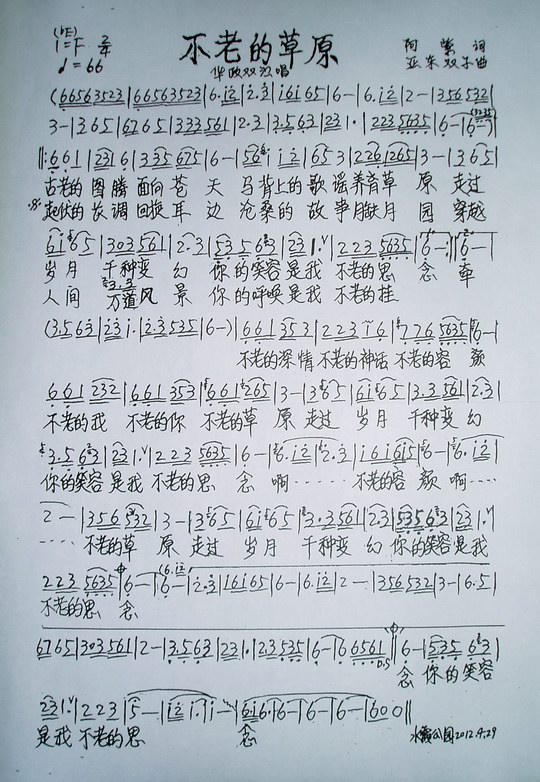 (bE)
1=F 2/4
♩=66
不老的草原
阿 紫 词
亚东 双子 曲
华政双江唱
(66563523|66563523|6·i2|2·3|i6i65|6-|6·i2|2-|356532|
3-|365|6765|333561|2·3|3·563|23 1·|2235635|6-|6-)|
||:661|2316|335675|6-|56i i2|653|2261265|3-|365|
古老的 图腾 面向 苍 天 马背上的 歌 谣 养育草 原 走过
起伏的 长调 回换 耳 边 沧桑的 故 事 月缺月 圆 穿越
6i65|303561|2·3|535 63|231·|2235635|6-:||6-|
岁月 千种变 幻 你的笑容是我 不老的思 念 牵
人间 万道风 景 你的呼唤是我 不老的挂
(3·563|23i·|2·3535|6-)|661353|223i6|7765635|6-|
不老的深情 不老的神话 不老的容 颜
661232|661353|661265|3-|365|6i65|3·3561|2·3|
不老的我 不老的你 不老的草 原 走过 岁月 千种变 幻
3·563|231·|2235635|6-|6·i2|2·3|i6i6i5|6-|6·i2|
你的笑容 是我 不老的思 念 啊······ 不老的容 颜 啊····
2-|356532|3-|365|6i65|3·3561|2·3|53563|231·|
···· 不老的草 原 走过 岁月 千种变 幻 你的笑容是我
2235635|6-|6-|2·3|i6i65|6-|6·i2|2-|356532|3-|6·5|
不老的思 念
6765|303561|2-|3·563|231·|23535|6-|66561|6-|53563|
念 你的笑容
231·|223|5-|i2i·|i-|6i6·|6-|6-|6-|600||
是我 不老的思 念
2012.9.29